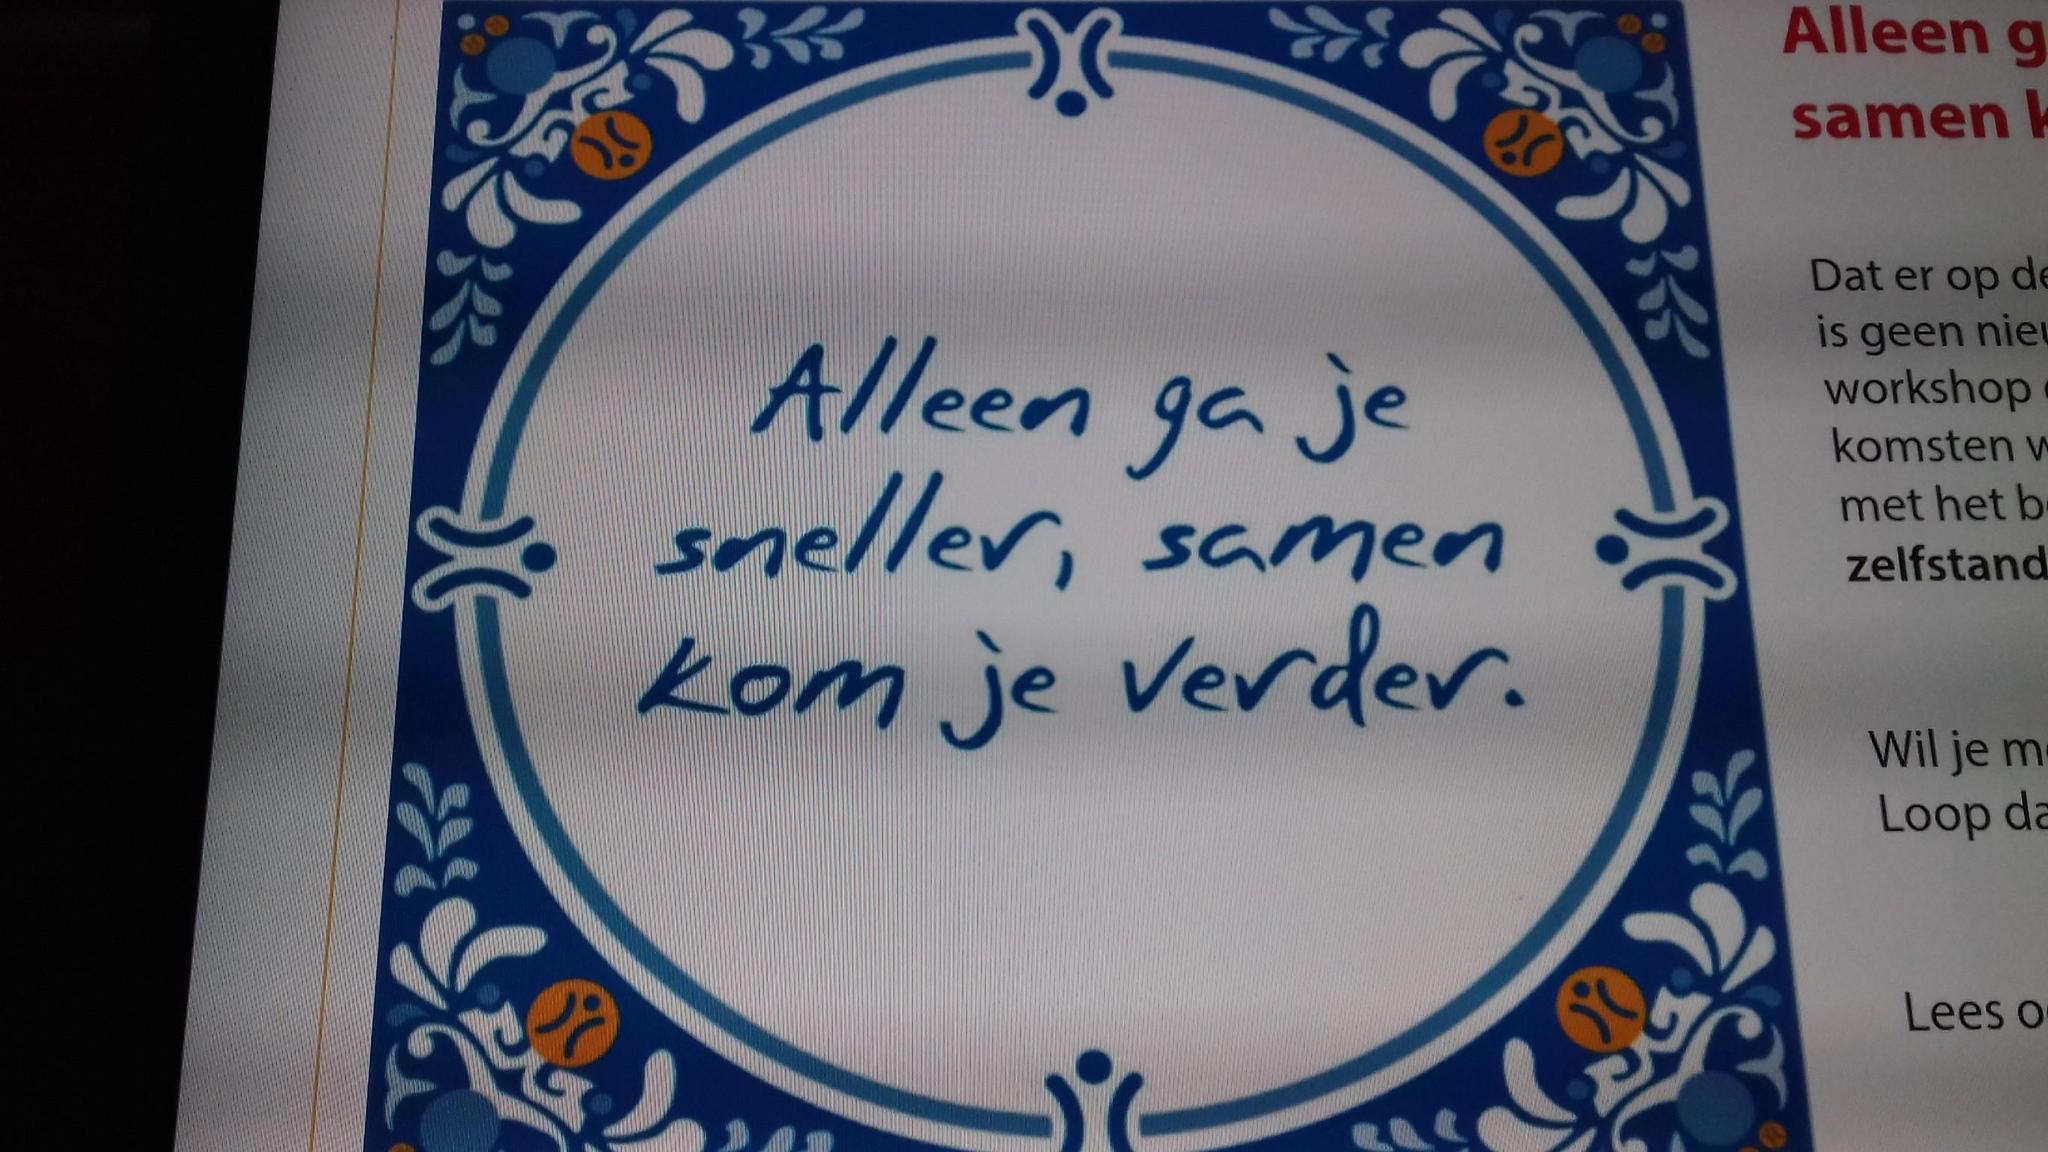 Alleen ga je
sneller, samen
kom je verder.
Alleen g
samen k
Dat er op de
is geen nieu
workshop
komsten w
met het be
zelfstand
Wil je me
Loop da
Lees oo